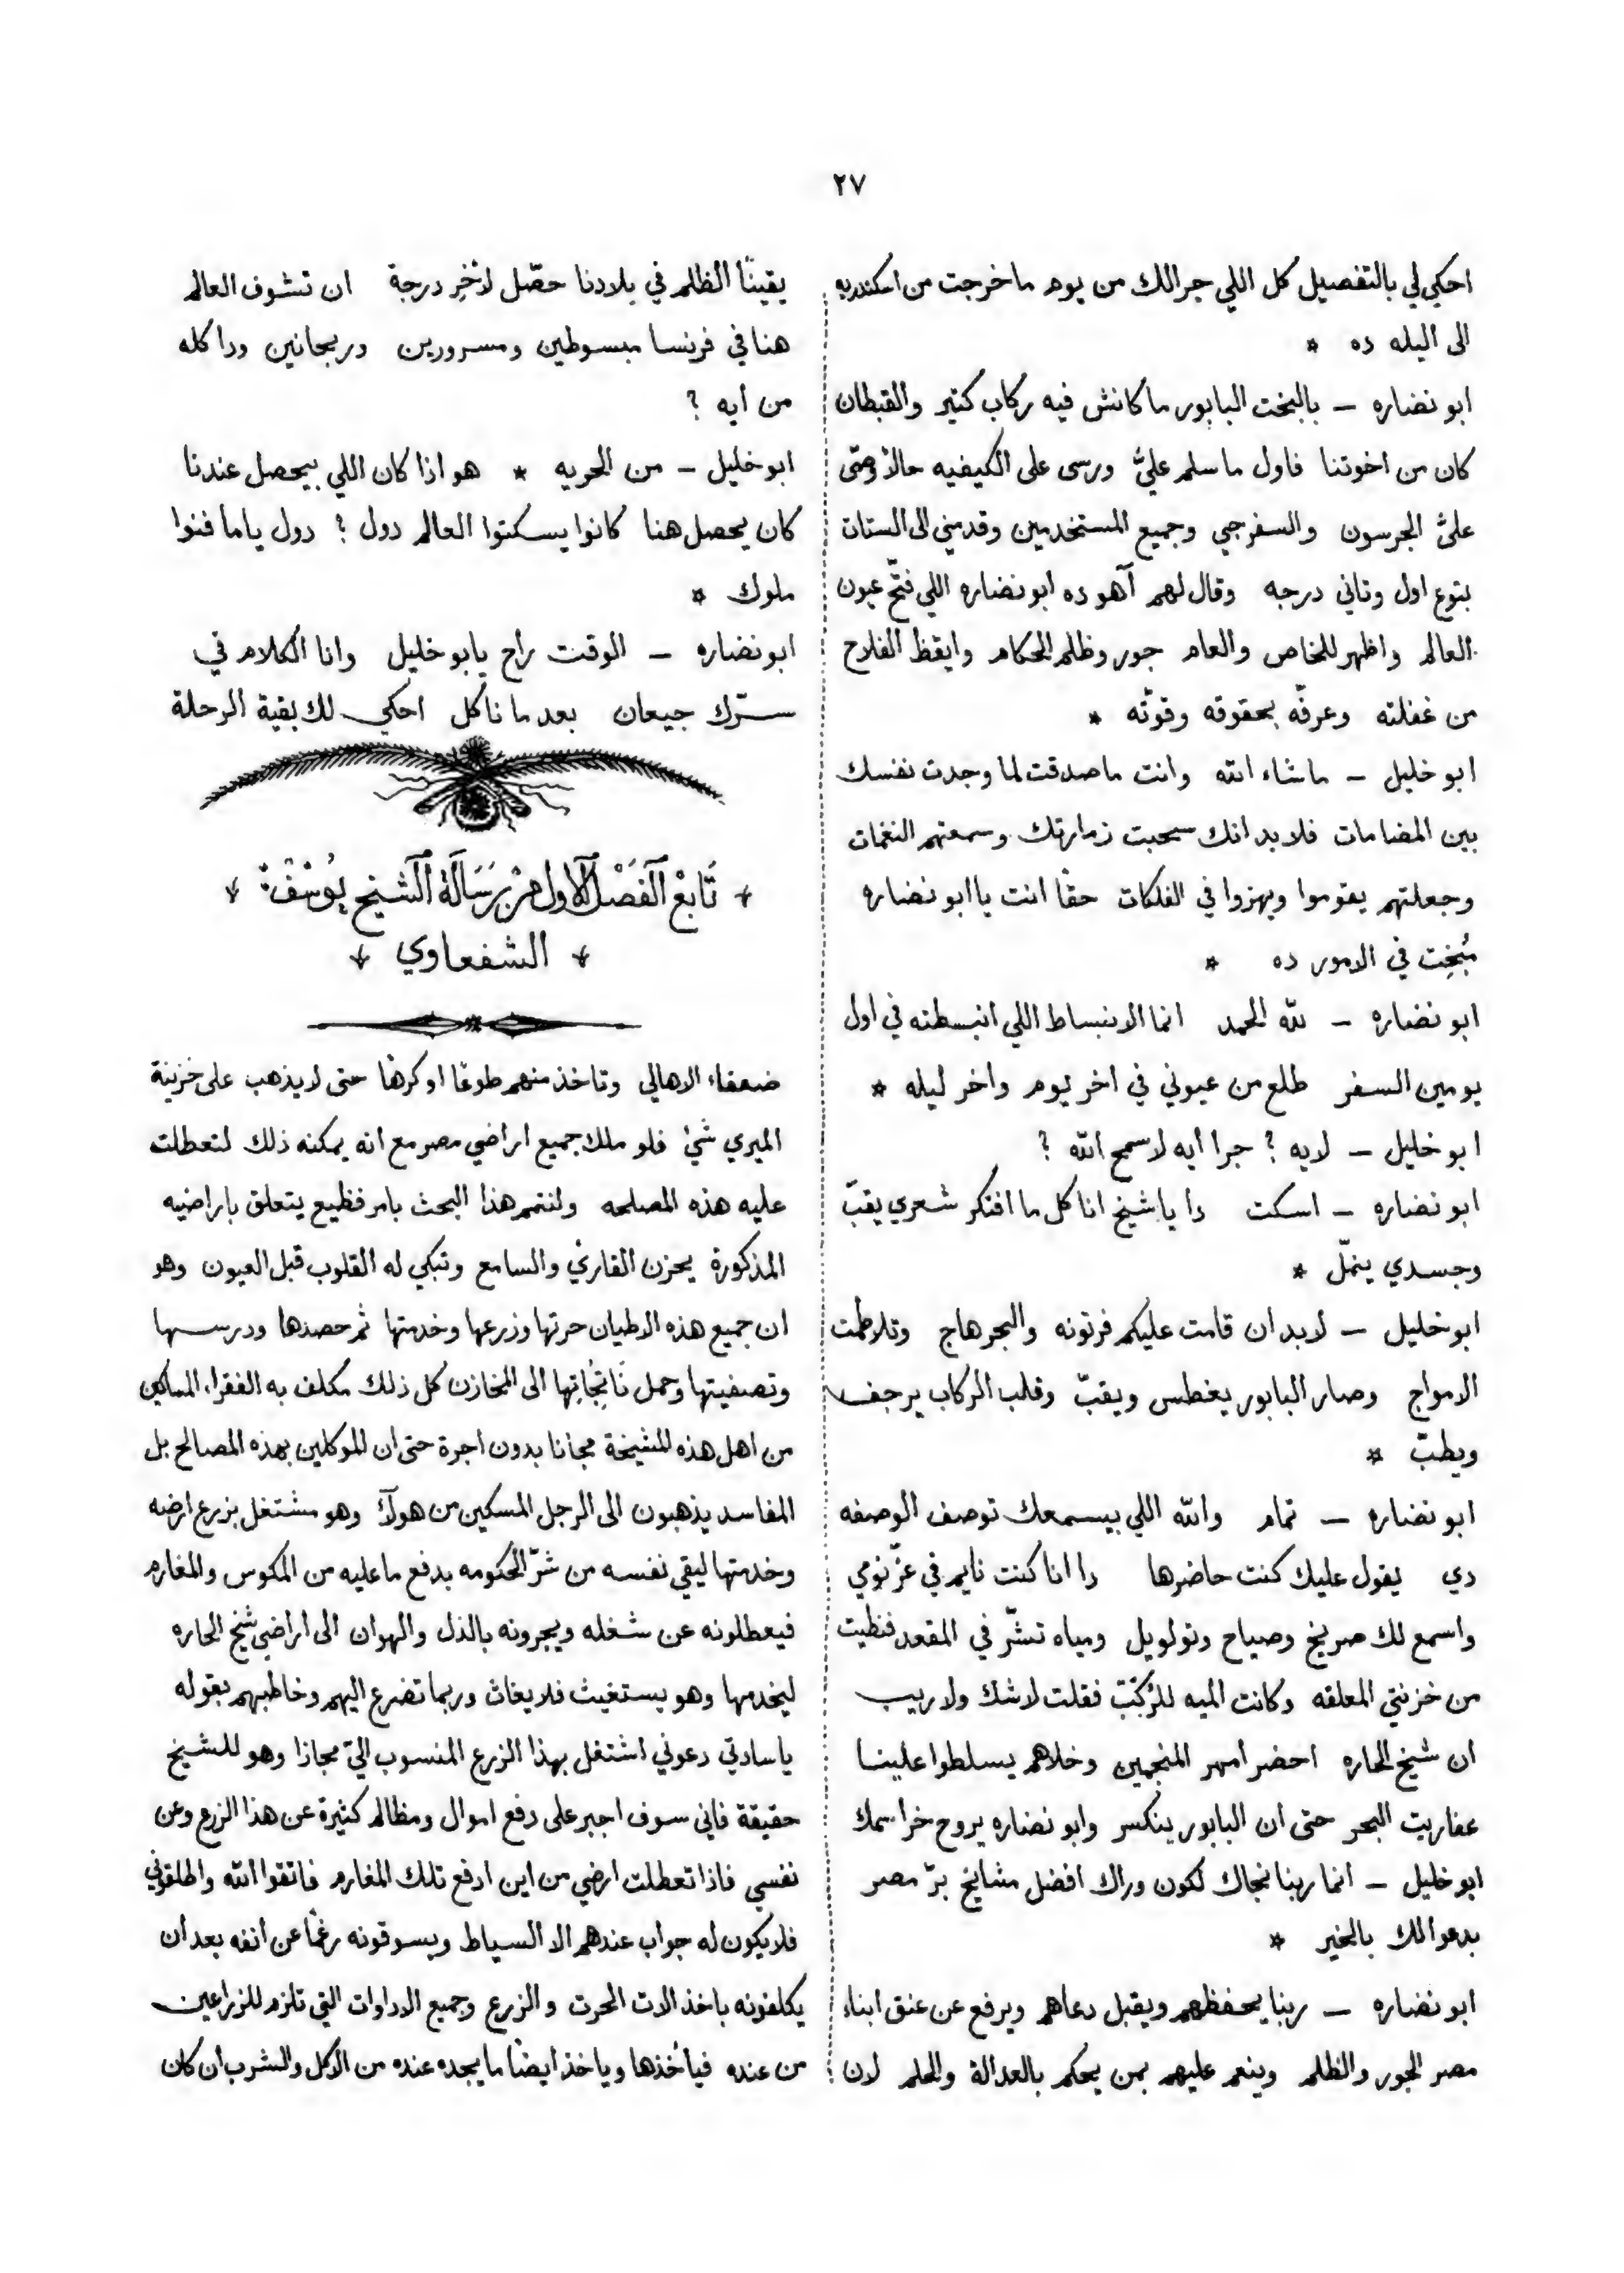 ٢٧
احكي لي بالتفصيل كل اللي جرالك من يوم ما خرجت من اسكندريه
الى اليله ده *
ابو نضاره — بالبخت البابور ما كانش فيه ركاب كتير والقبطان
كان من اخوتنا فاول ما سلم عليَّ ورسى على الكيفيه حالاً وصّى
عليَّ الجرسون والسفرجي وجميع المستخدمين وقدمني الى الستات
بتوع اول وتاني درجه وقال لهم آهو ده ابو نضاره اللي فتّح عيون
العالم واظهر للخاص والعام جور وظلم الحكام وايقظ الفلاح
من غفلته وعرفّه بحقوقه وقوته *
ابو خليل — ماشاء الله وانت ما صدقت لما وجدت نفسك
بين المضامات فلا بد انك سحبت زمارتك وسمعتهم النغمات
وجعلتهم يقوموا ويهزوا في الفلكات حقًا انت يا ابو نضاره
مُبْخِت في الامور ده *
ابو نضاره — لله الحمد انما الانبساط اللي انبسطته في اول
يومين السفر طلع من عيوني في اخر يوم واخر ليله *
ابو خليل — لايه ؟ جرا أيه لا سمح الله ؟
ابو نضاره — اسكت دا يا شيخ انا كل ما افتكر شعري يقبّ
وجسدي ينمّل *
ابو خليل — لا بد ان قامت عليكم فرتونه والبحر هاج وتلاطمت
الامواج وصار البابور يغطس ويقبّ وقلب الركاب يرجف
ويطبّ *
ابو نضاره — تمام والله اللي بيسمعك توصف الوصفه
دي يقول عليك كنت حاضرها دا انا كنت نايم في عزّ نومي
واسمع لك صريخ وصياح وتولويل ومياه تشرّ في المقعد فنظيت
من خزنتي المعلقه وكانت الميه للركبّ فقلت لا شك ولا ريب
ان شيخ الحاره احضر امهر المنجمين وخلاهم يسلطوا علينا
عفاريت البحر حتى ان البابور ينكسر وابو نضاره يروح خرا سمك
ابو خليل — انما ربنا نجاك لكون وراك افضل مشايخ برّ مصر
بدعوالك بالخير *
ابو نضاره — ربنا يحفظهم ويقبل دعاهم ويرفع عن عنق ابناء
مصر الجور والظلم وينعم عليهم بمن يحكم بالعدالة والحلم لان
يقينًا الظلم في بلادنا حصّل لأخِر درجة ان تشوف العالم
هنا في فرنسا مبسوطين ومسرورين وريجانين ودا كله
من أيه ؟
ابو خليل — من الحريه * هو اذا كان اللي بيحصل عندنا
كان يحصل هنا كانوا يسكتوا العالم دول ؟ دول ياما فنوا
ملوك *
ابو نضاره — الوقت راح يابو خليل وانا الكلام في
سرّك جيعان بعد ما ناكل احكي لك بقية الرحلة
تَابِعْ الْفَصْل الْاَول مِنْ رِسَالَة الْشَيْخ يُوسُفْ
الشفعاوي
ضعفاء الاهالي وتاخذ منهم طوعًا او كرهًا حتى لا يذهب على خزينة
الميري شيْ فلو ملك جميع اراضي مصر مع انه يمكنه ذلك لتعطلت
عليه هذه المصلحه ولنتمم هذا البحث بامر فظيع يتعلق باراضيه
المذكورة يحزن القاريْ والسامع وتبكي له القلوب قبل العيون وهو
ان جميع هذه الاطيان حرثها وزرعها وخدمتها ثم حصدها ودرسها
وتصفيتها وحمل نَاتِجُاتِها الى المخازن كل ذلك مكلف به الفقراء المساكين
من اهل هذه المشيخة مجانا بدون اجرة حتى ان الموكلين بهذه المصالح بل
المفاسد يذهبون الى الرجل المسكين من هولآء وهو مشتغل بزرع ارضه
وخدمتها ليقي نفسه من شرّ الحكومه بدفع ما عليه من المكوس والمغارم
فيعطلونه عن شغله ويجرونه بالذل والهوان الى اراضي شيخ الحاره
ليخدمها وهو يستغيث فلا يغاث وربما تضرع اليهم وخاطبهم بقوله
يا سادتي دعوني اشتغل بهذا الزرع المنسوب اليّ مجازا وهو للشيخ
حقيقة فاني سوف اجبر على دفع اموال ومظالم كثيرة عن هذا الزرع وعن
نفسي فاذا تعطلت ارضي من اين ادفع تلك المغارم فاتقوا الله واطلقوني
فلا يكون له جواب عندهم الا السياط ويسوقونه رغمًا عن انفه بعد ان
يكلفونه باخذ الات الحرت والزرع وجميع الاداوات التي تلزم للزراعين
من عنده فيأخذها وياخذ ايضًا ما يجده عنده من الاكل والشرب ان كان